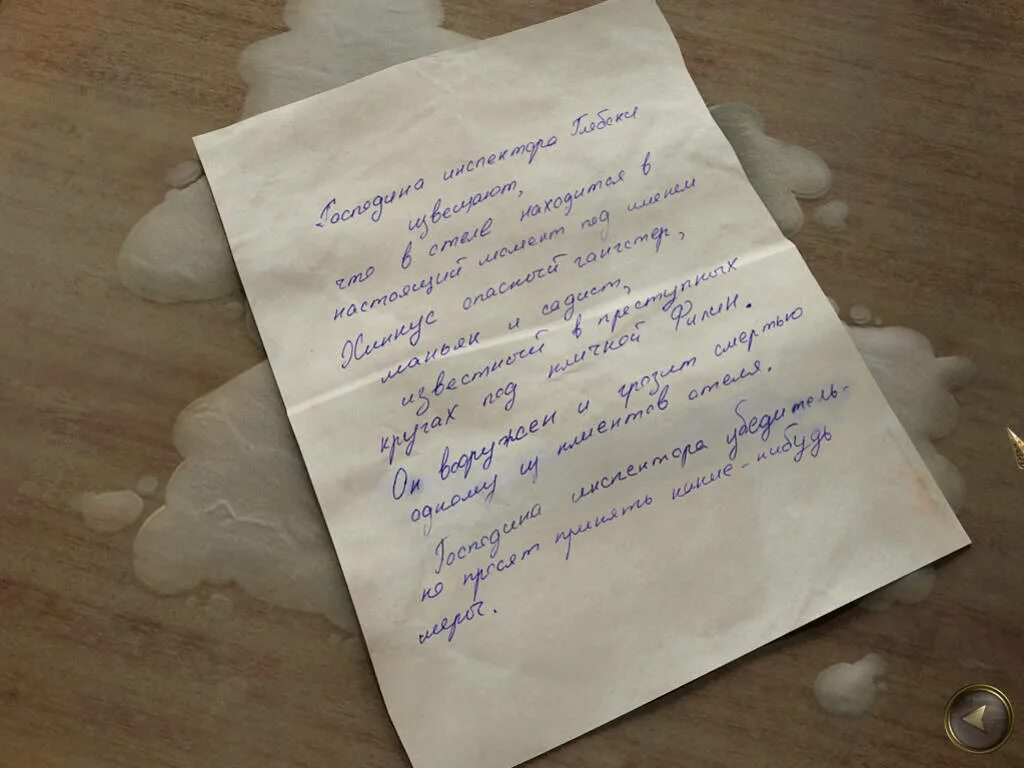 Господина инспектора Глебски
извещают,
что в отеле находится в
настоящий момент под именем
Хинкус опасный гангстер,
маньяк и садист,
известный в преступных
кругах под кличкой Филин.
Он вооружен и грозит смертью
одному из клиентов отеля.
Господина инспектора убедитель-
но просят принять какие-нибудь
меры.